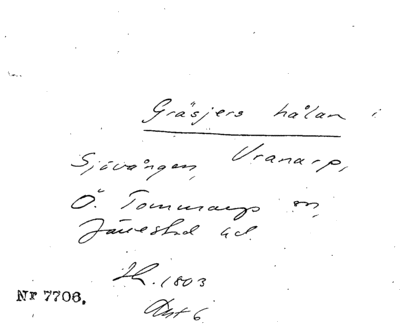 Gräsjers hålan i
Sjövången, Vranarp,
Ö. Tommarps sn,
Järrestad hd.
Sk. 1803
Nr 7706.
6